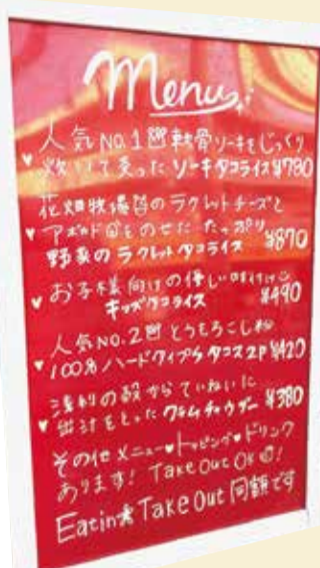 Menu
人気NO.1 軟骨ソーキをじっくり
炊いて炙った ソーキタコライス ¥790
花畑牧場のラクレットチーズと
アボカドをのせた たっぷり
野菜の ラクレットタコライス ¥870
お子様向けの優しい味付け
キッズタコライス ¥490
人気NO.2 とうもろこし粉
100% ハードタイプ タコス2P ¥420
浅利の殻からていねいに
出汁をとった クラムチャウダー ¥380
その他メニュー♥トッピング♥ドリンク
あります! Take Out OK!
Eatin★Take Out 同額です